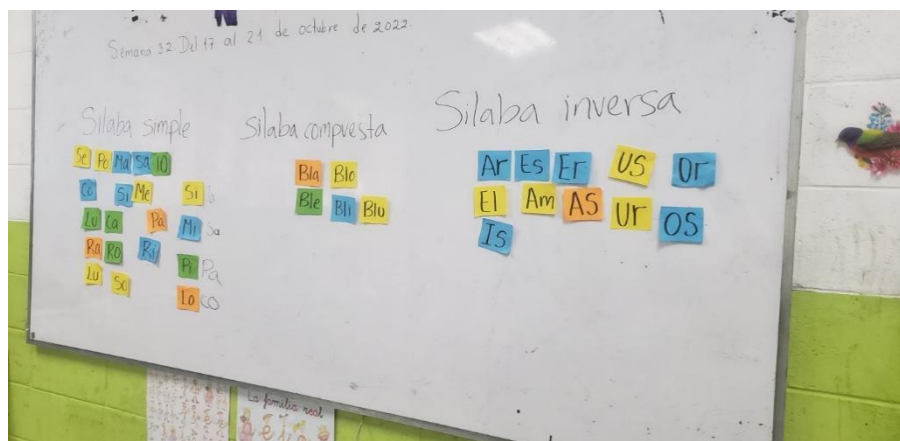 Semana 32 Del 17 al 21 de octubre de 2022.
Silaba simple
Se Po Ma Sa
Co Si Me Si
Lu Ca Pa Mi sa
Ra Ro Ri Pi Pa
Lu So Lo co
Silaba compuesta
Bla Blo
Ble Bli Blu
Silaba inversa
Ar Es Er US Or
El Am AS Ur OS
IS
La familia real